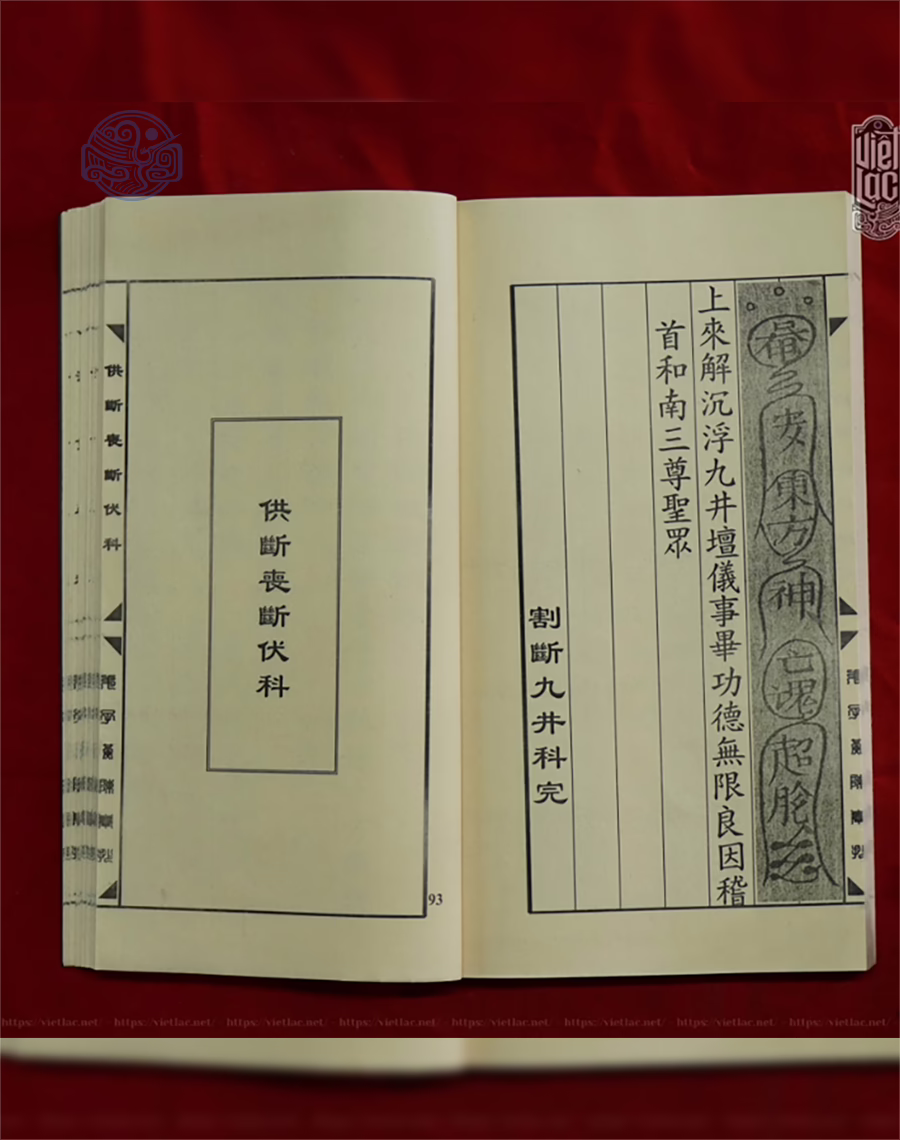 Việt
Lạc
安東方
神
亡魂
超
上來解沉浮九井壇儀事畢功德無限良因稽
首和南三尊聖眾
割斷九井科完
供斷喪斷伏科
93
供斷喪斷伏科
https://vietlac.net/ - https://vietlac.net/ - https://vietlac.net/ - https://vietlac.net/ - https://vietlac.net/ - https://vietlac.net/ - https://vietlac.net/ - https://vietlac.net/